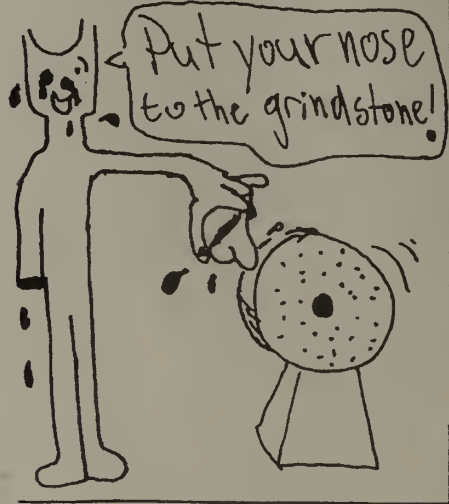 Put your nose
to the grindstone!